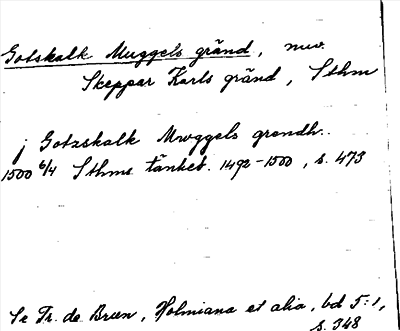 Gotskalk Muggels gränd, nuv.
Skeppar Karls gränd, Sthm
j Gotzskalk Mwggels grondh..
1500 6/4 Sthms tänkeb. 1492-1500, s. 473
Se Fr. de Brun, Holmiana et alia, bd 5:1,
s. 348